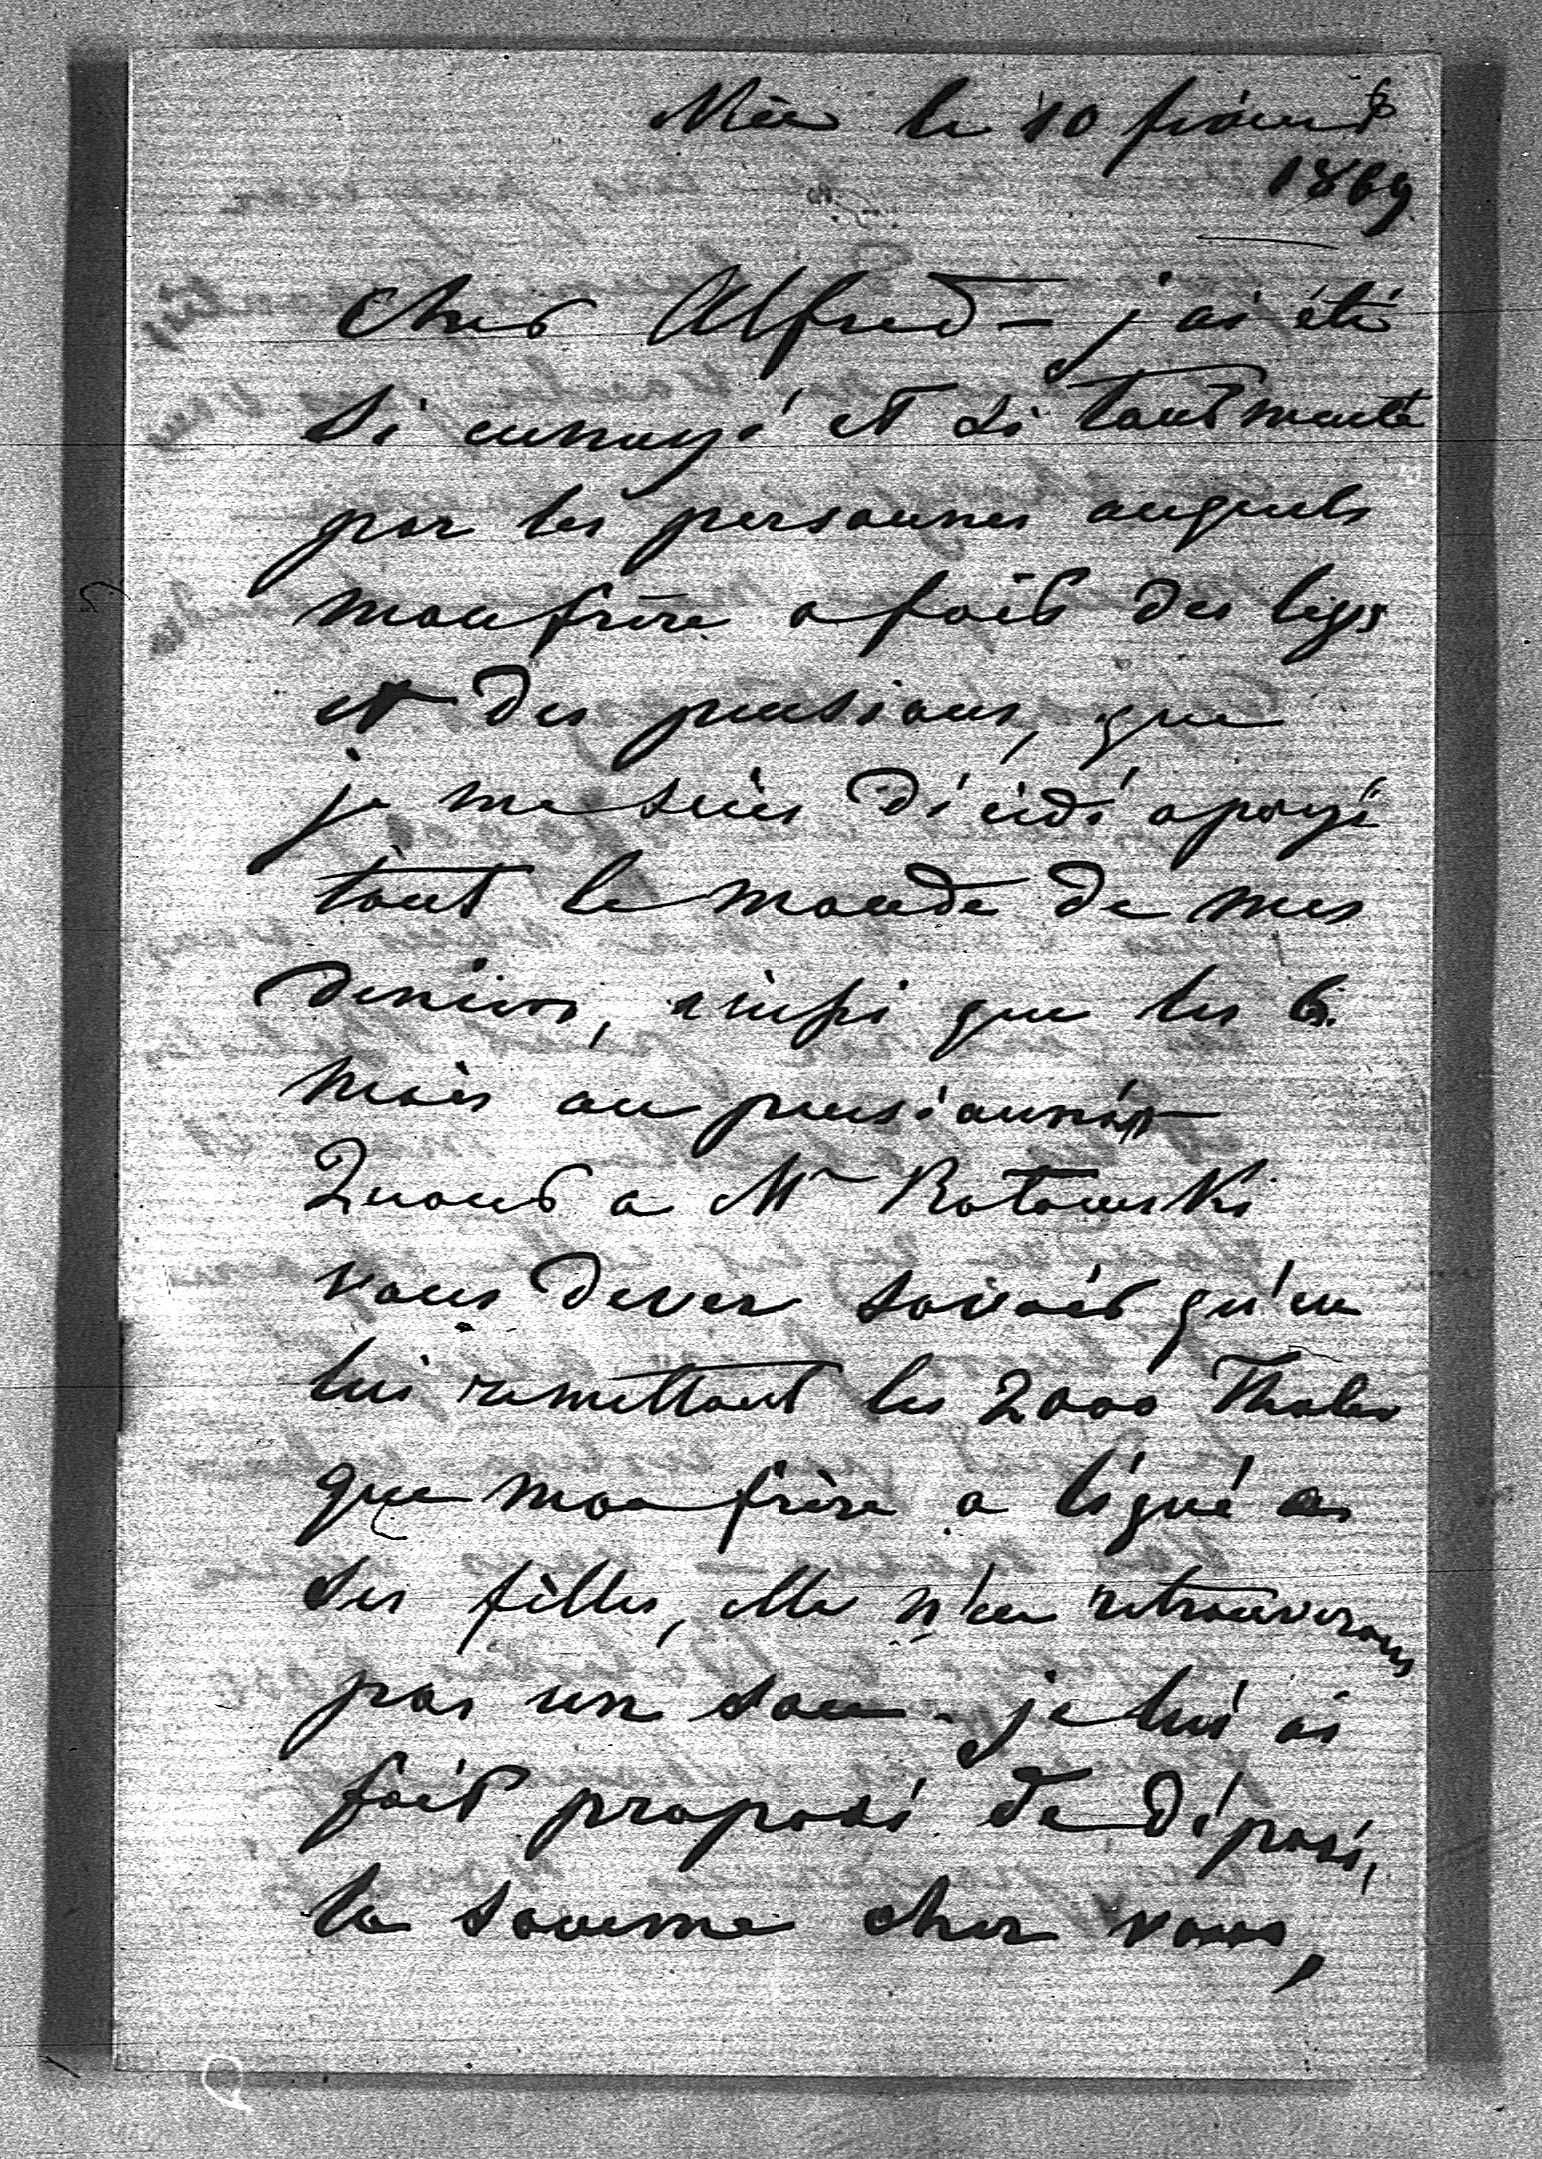 Nice le 10 février
1869
Cher Alfred – j'ai été
si ennuyé et si tourmenté
par les personnes auquels
mon frère a fait des legs
et des pensions, que
je me suis décidé a payé
tout le monde de mes
deniers, ainsi que les 6.
mois au pensionnés
Quant a Mr Rotowski
vous devez savoir qu'en
lui remettant les 2000 Thaler
que mon frère a légué a
ses filles, elle n'en retrouverons
pas un sou – je lui ai
fait proposé de déposé,
la somme chez vous,